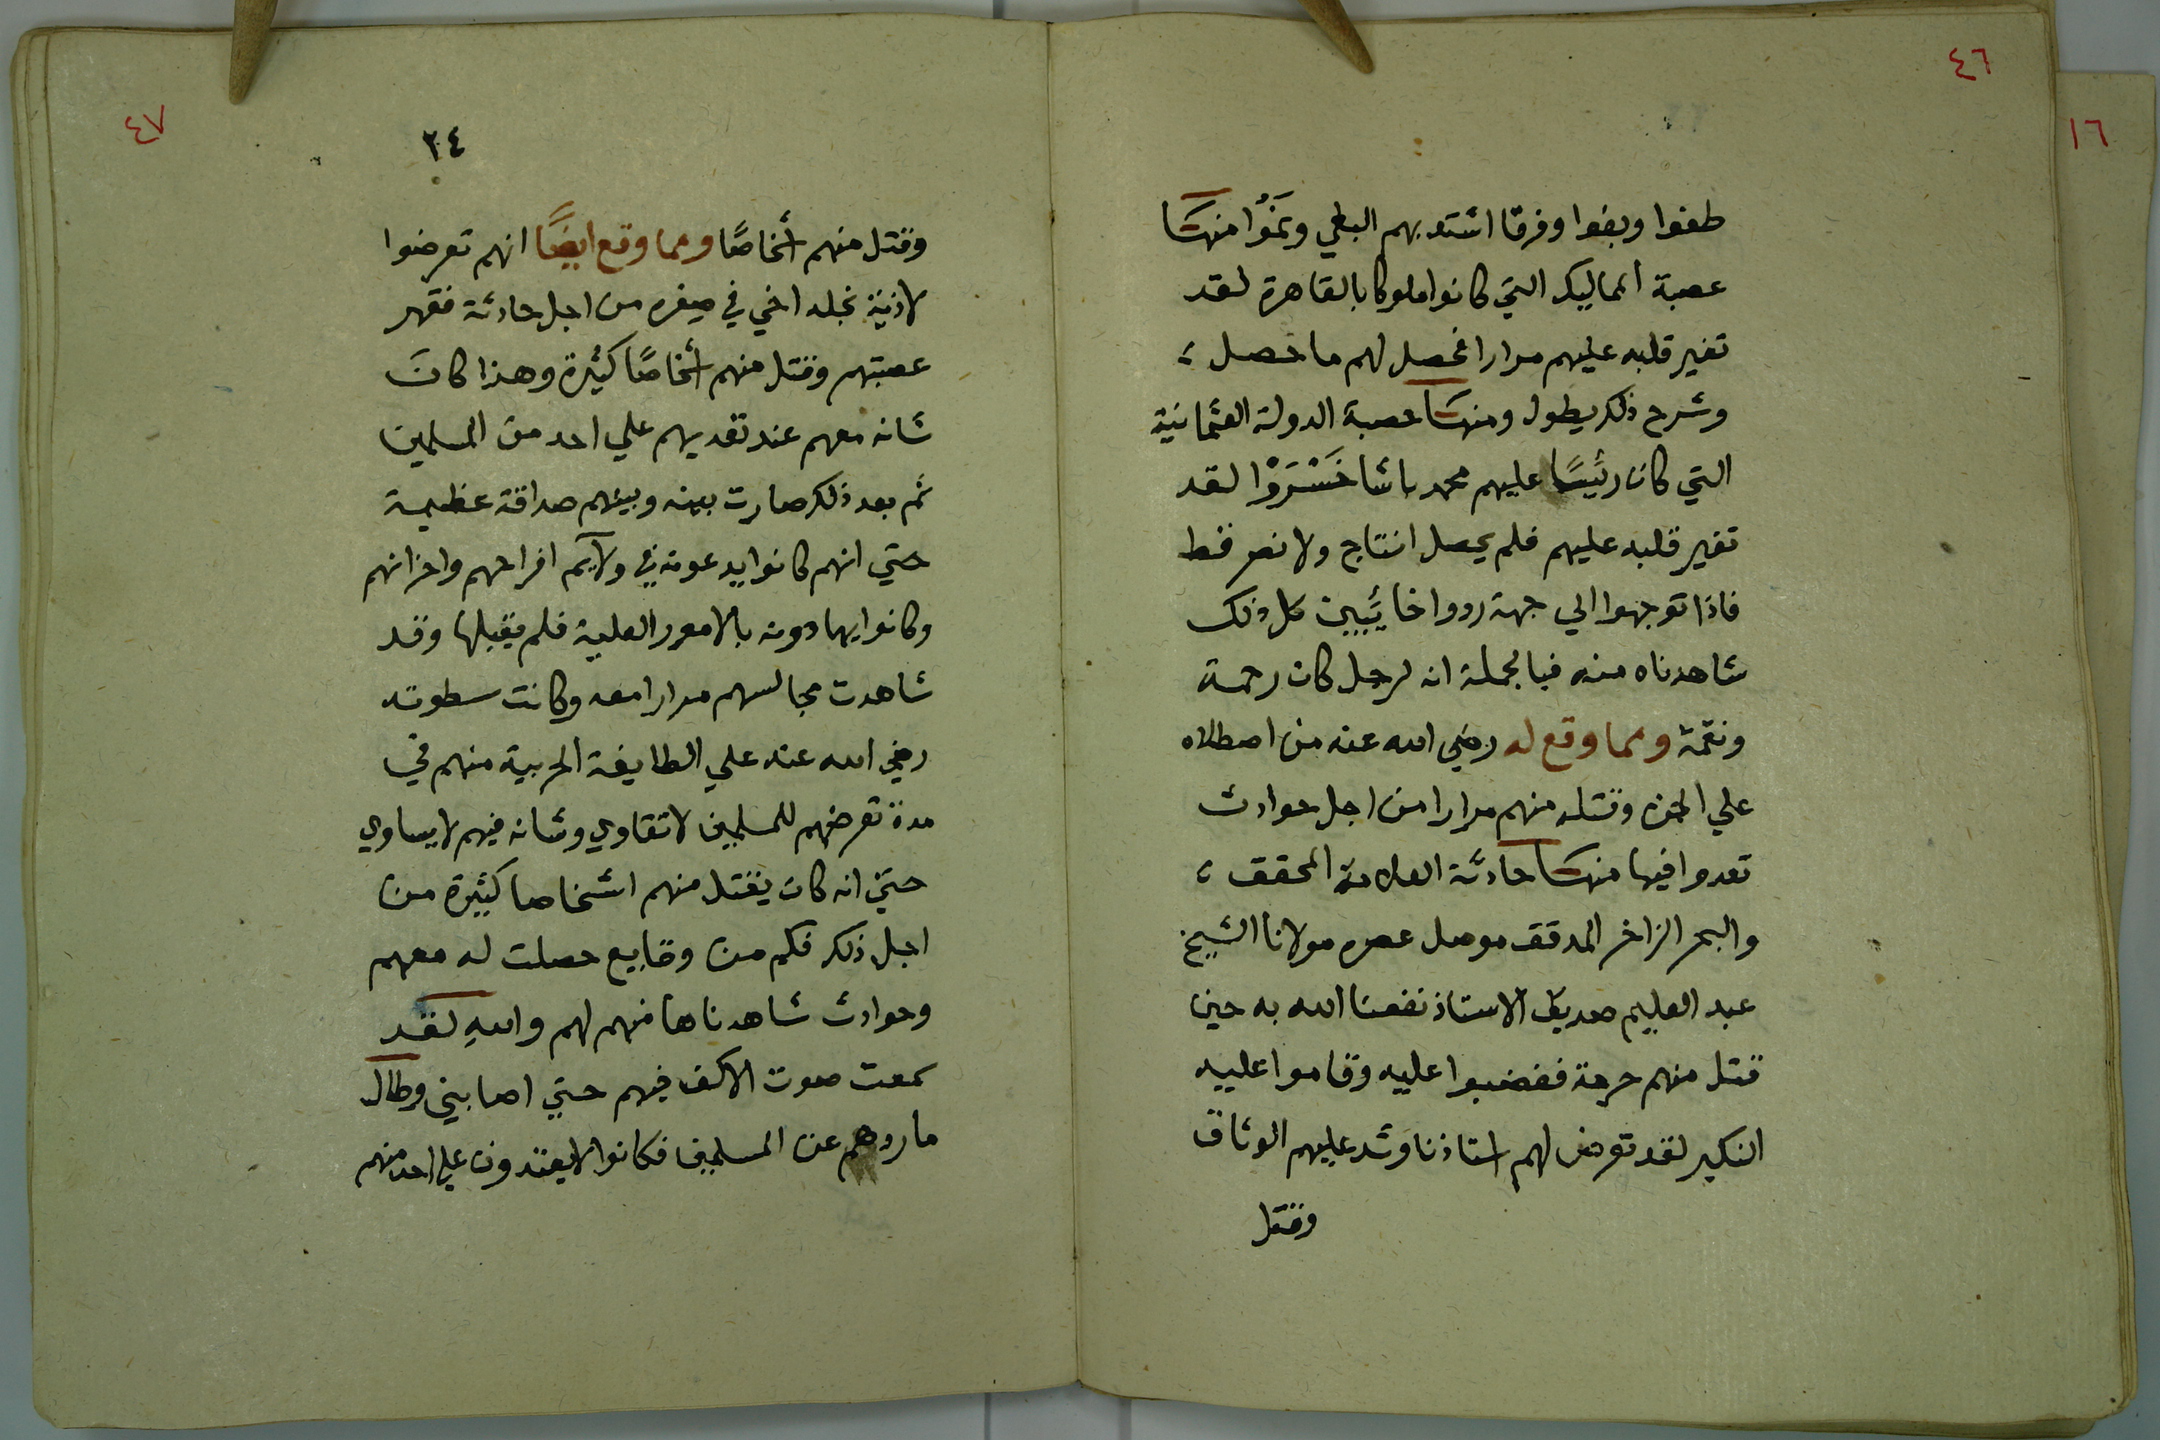 ٤٦
١٦
طغوا وبغوا وفرقا اشتد بهم البغي ونموا منها
عصبة المماليك التي كانوا ملوكا بالقاهرة لقد
تغير قلبه عليهم مرارا فحصل لهم ما حصل ،
وشرح ذلك يطول ومنها عصبة الدولة العثمانية
التي كان رئيسًا عليهم محمد باشا خَسْرَوْا لقد
تغير قلبه عليهم فلم يحصل انتاج ولا نصر قط
فاذا توجهوا الي جهة ردوا خايبين كل ذلك
شاهدناه منه فبالجملة انه لرجل كان رحمة
ونقمة ومما وقع له رضي الله عنه من اصطلاه
علي الجن وقتله منهم مرارا من اجل حوادث
تعدوا فيها منها حادثة العلامة المحقق ،
والبحر الزاخر المدقق موصل عصره مولانا الشيخ
عبد العليم صديق الاستاذ نفعنا الله به حين
قتل منهم فغضبوا عليه وقاموا عليه
النكير لقد تعرض لهم استاذنا وشد عليهم الوثاق
وقتل
٤٧
٢٤
وقتل منهم أشخاصًا ومما وقع ايضًا انهم تعرضوا
لاذية نجله اخي في صغره من اجل حادثة فقهر
عصبتهم وقتل منهم أشخاصًا كثيرة وهذا كانَ
شانه معهم عند تعديهم علي احد من المسلمين
ثم بعد ذلك صارت بينه وبينهم صداقة عظيمة
حتي انهم كانوا يدعونه في ولآيم افراحهم واحزانهم
وكانوا يهادونه بالامور العلية فلم يقبلها وقد
شاهدت مجالسهم مرارا معه وكانت سطوته
رضي الله عنه علي الطايفة الحربية منهم في
مدة تعرضهم للمسلمين لا تقاوي وشانه فيهم لا يساوي
حتي انه كان يقتل منهم اشخاصا كثيرة من
اجل ذلك فكم من وقايع حصلت له معهم
وحوادث شاهدناها منهم لهم واللهِ لقد
سمعت صوت الاكف فيهم حتي اصابني وطال
ما ردهم عن المسلمين فكانوا لا يعتدون علي احد منهم